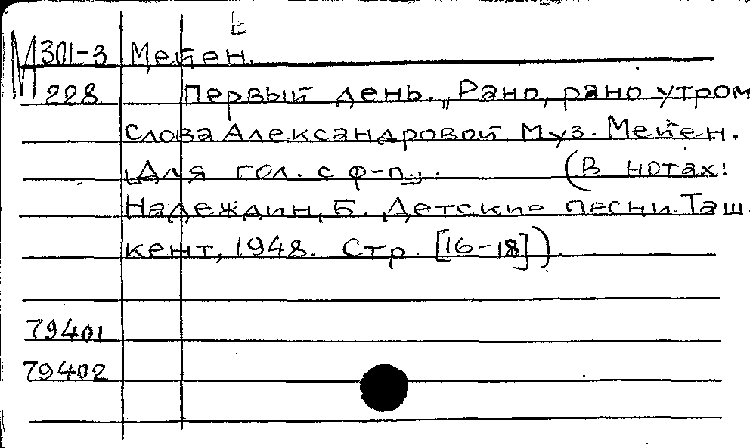 Е
М 301-3 Мейен.
228 Первый день. „Рано, рано утром
Слова Александровой Муз. Мейен.
[Для гол. с ф-п]. (В нотах:
Надеждин, Б. Детские песни. Таш
кент, 1948. Стр. [16-18])
79401
79402